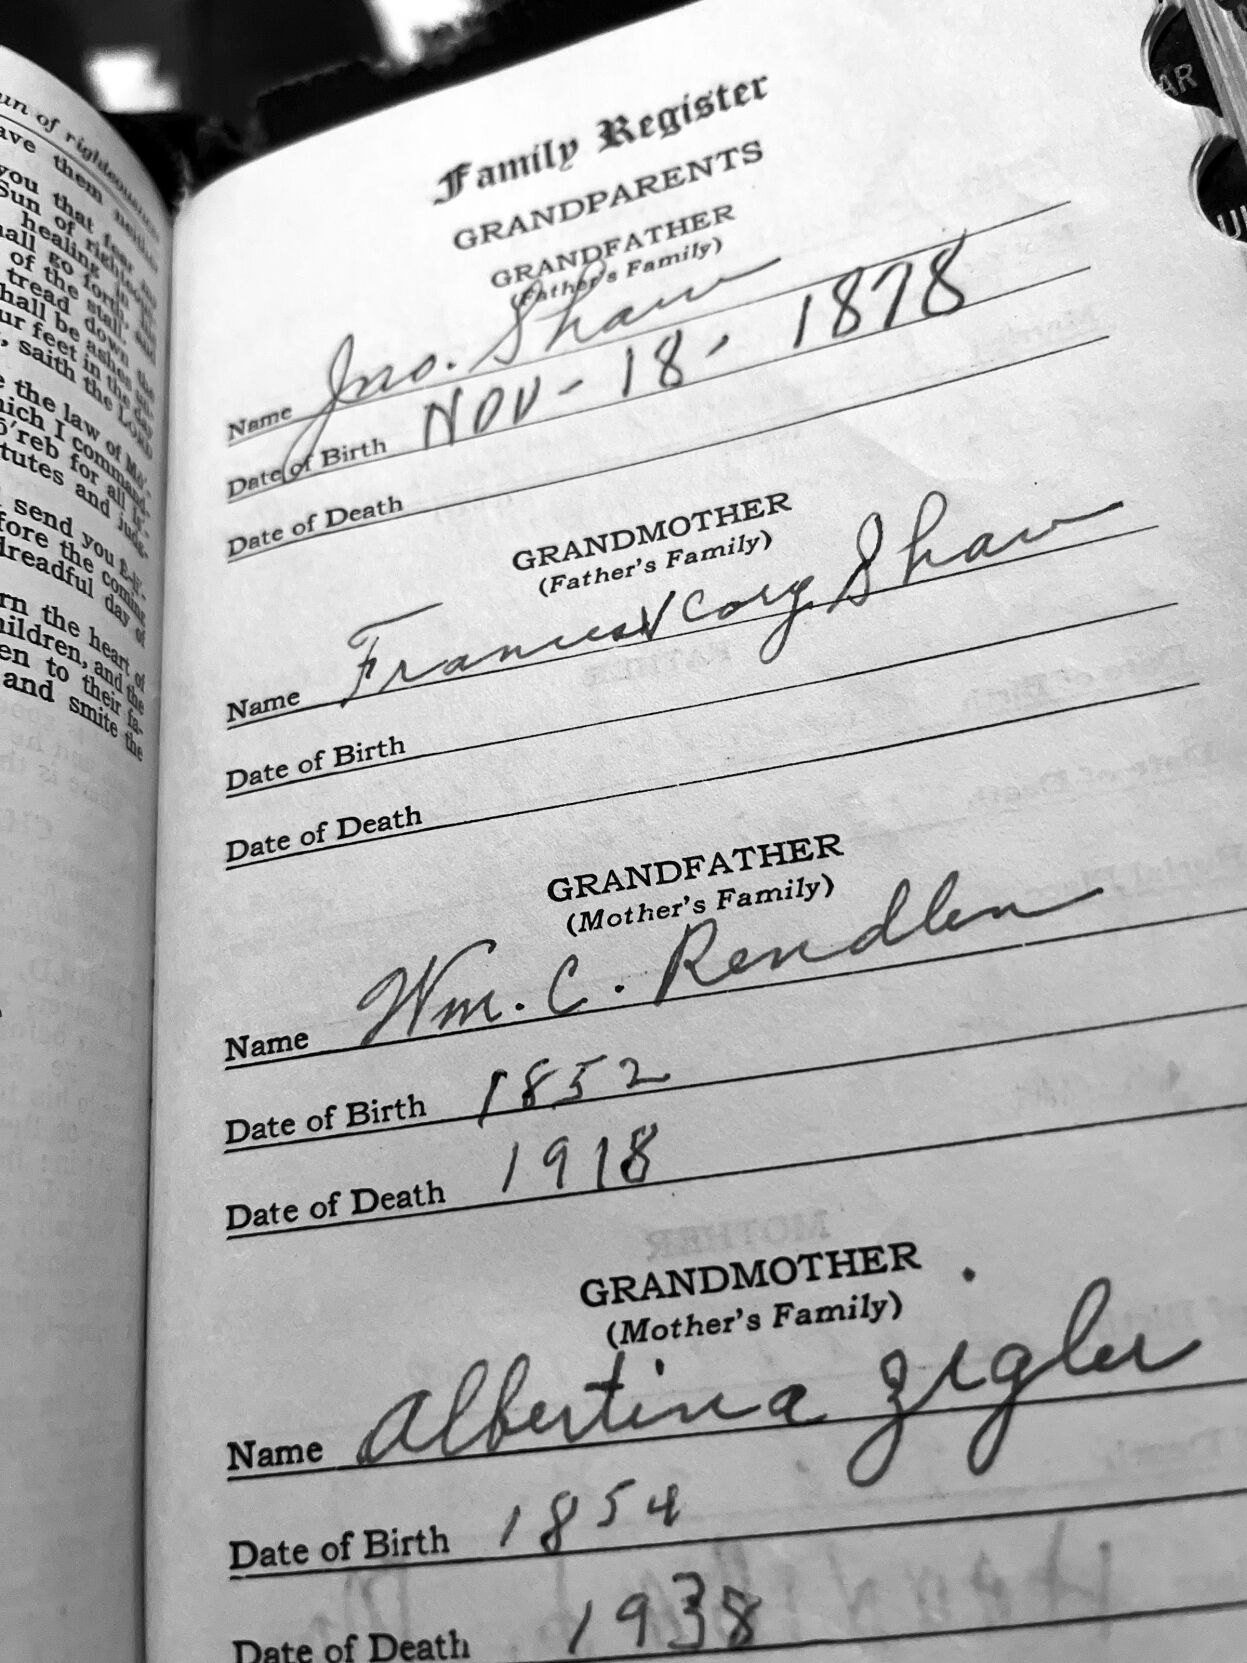 un of righteousness
ave them neither
you that fear my
Sun of righteous
healing in his
all go forth, and
of the stall.
tread down the
hall be ashes
ur feet in the day
, saith the LORD
e the law of Mo'-
hich I command-
o'reb for all Is'-
tutes and judg-
send you E-li'-
fore the coming
dreadful day of
rn the heart of
hildren, and the
en to their fa-
and smite the
AR
Family Register
GRANDPARENTS
GRANDFATHER
(Father's Family)
Name Jno. Shaw
Date of Birth NOV - 18, 1878
Date of Death
GRANDMOTHER
(Father's Family)
Name Frances Cory Shaw
Date of Birth
Date of Death
GRANDFATHER
(Mother's Family)
Name Wm. C. Rendlen
Date of Birth 1852
Date of Death 1918
GRANDMOTHER
(Mother's Family)
Name Albertina Zigler
Date of Birth 1854
Date of Death 1938